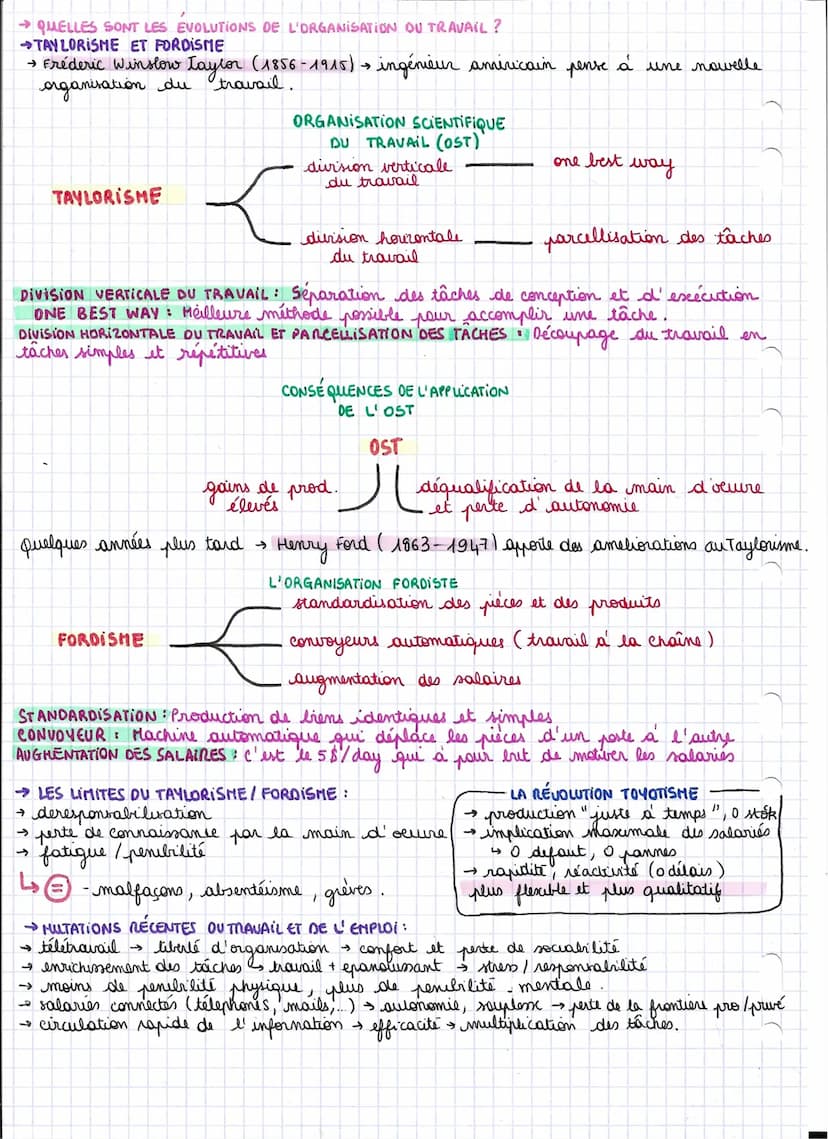 → QUELLES SONT LES ÉVOLUTIONS DE L'ORGANISATION DU TRAVAIL ?
→ TAYLORISME ET FORDISME
→ Fréderic Winslow Taylor (1856-1915) → ingénieur américain pense à une nouvelle
organisation du travail.
ORGANISATION SCIENTIFIQUE
DU TRAVAIL (OST)
TAYLORISME
division verticale
du travail
one best way
division horizontale
du travail
parcellisation des tâches
DIVISION VERTICALE DU TRAVAIL : Séparation des tâches de conception et d'exécution
ONE BEST WAY : Meilleure méthode possible pour accomplir une tâche.
DIVISION HORIZONTALE DU TRAVAIL ET PARCELLISATION DES TÂCHES : Découpage du travail en
tâches simples et répétitives
CONSÉQUENCES DE L'APPLICATION
DE L'OST
OST
gains de prod.
élevés
déqualification de la main d'oeuvre
et perte d'autonomie
Quelques années plus tard → Henry Ford (1863-1947) apporte des ameliorations au Taylorisme.
L'ORGANISATION FORDISTE
FORDISME
standardisation des pièces et des produits
convoyeurs automatiques (travail à la chaîne)
augmentation des salaires
STANDARDISATION : Production de biens identiques et simples
CONVOYEUR : Machine automatique qui déplace les pièces d'un poste à l'autre
AUGMENTATION DES SALAIRES : c'est le 5$/day qui à pour but de motiver les salariés
→ LES LIMITES DU TAYLORISME / FORDISME :
→ deresponsabilisation
→ perte de connaissance par la main d'oeuvre
→ fatigue / penibilité
↳ = - malfaçons, absentéisme, grèves.
LA RÉVOLUTION TOYOTISME
→ production "juste à temps", 0 stök
→ implication maximale des salariés
↳ 0 defaut, 0 pannes
→ rapidité, réactivité (0 délais)
plus flexible et plus qualitatif
→ MUTATIONS RÉCENTES DU TRAVAIL ET DE L'EMPLOI :
→ télétravail → liberté d'organisation → confort et perte de sociabilité
→ enrichissement des tâches ↳ travail + epanouissant → stress / responsabilité
→ moins de penibilité physique, plus de penibilité mentale.
→ salariés connectés (téléphones, mails,...) → autonomie, souplesse → perte de la frontière pro/privé
→ circulation rapide de l'information → efficacité → multiplication des tâches.